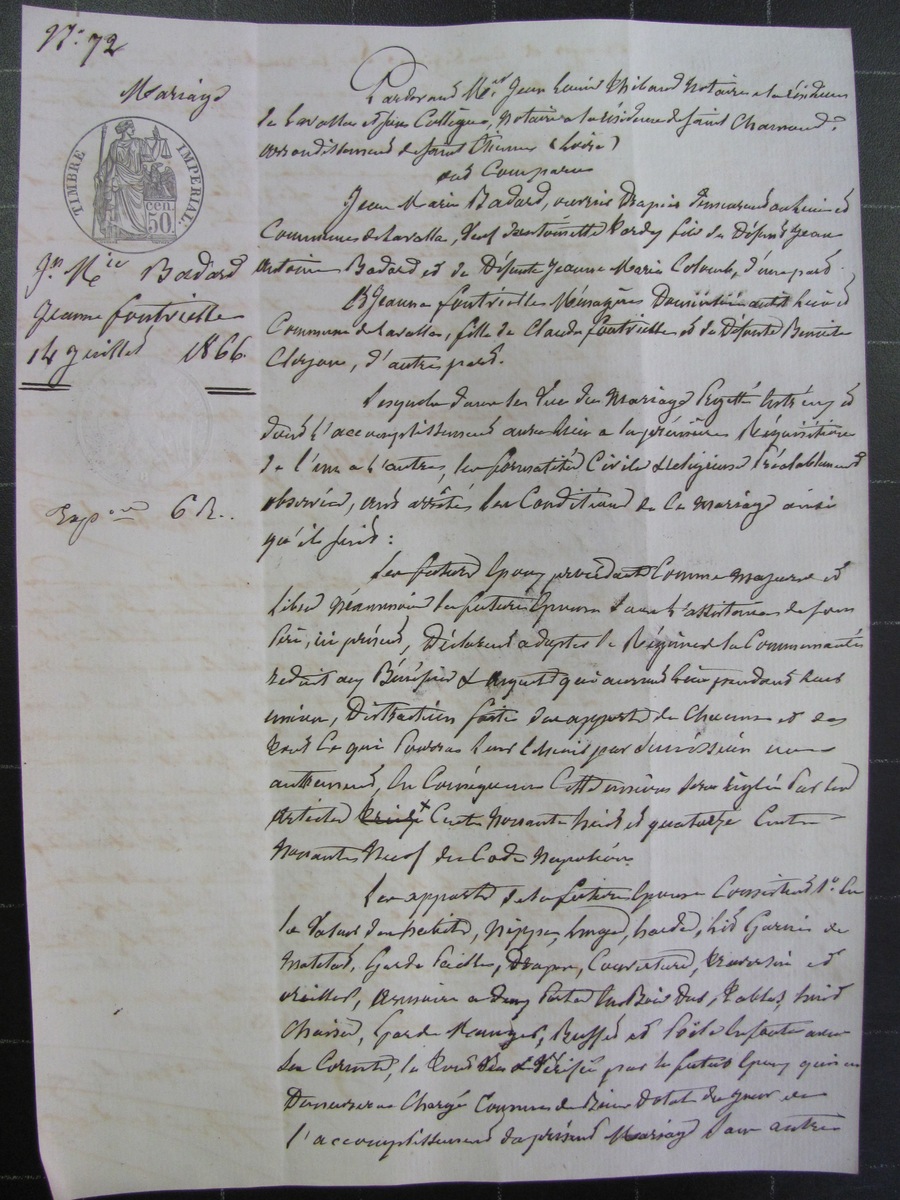 N.° 72
Mariage
TIMBRE IMPERIAL
cen
50.
Jn Mie Badard
Jeanne fontvielle
14 juillet 1866.
Exp on 6 R..
Pardevant Mes Jean Louis Thibaud Notaire a la résidence
de Lavalla et son Collègue, Notaire a la résidence de Saint Chamond,
arrondissement de Saint Etienne (Loire)
ont Comparu
Jean Marie Badard, ouvrier Drapier demeurant
Commune de Lavalla, Veuf d'antoinette Tardy fils de Défunt Jean
Antoine Badard et de Défunte Jeanne Marie Colomb, d'une part.
Et Jeanne fontvielle Ménagère Domiciliée audit lieu
Commune de Lavalla, fille de Claude fontvielle et de Défunte Benoite
, d'autre part.
Lesquels dans les Vue du Mariage Projetté entr'eux et
dont l'accomplissement aura lieu a la première Réquisition
de l'un a l'autre, les formalités Civile & religieuse Préalablement
observée, ont arrêtés les Conditions de Ce Mariage ainsi
qu'il suit :
Les futurs Epoux procédant Comme majeurs et
libre Néanmoins la future Epouse sous l'assistance de son
Père, ici présent, Déclarent adopter le Régime de la Communauté
réduit aux Bénéfices & aquets qui auront lieu pendant leur
union, Distraction faite des apports de Chacun et de
tout Ce qui Pourra leur échoir par Succession ou
autrement, En Conséquence Cette dernière sera réglée Par les
articles Cents Nonante huit et quatorze Cents
Nonante Neuf du Code Napoléon.
Les apports de la future Epouse Consistent 1.° En
la Valeur des habits, Nippes, linges, hardes, lit Garnie de
Matelas, Garde Paille, Draps, Couverture, traversin et
oreiller, armoire a deux Portes En Bois dur, Table, huit
Chaises, Garde Manger, Buffet et Poële En fonte avec
Ses Cornets, le tout Vu & Vérifié par le futur Epoux qui en
Demeurera Chargé Comme de Biens Dotal du jour de
l'accomplissement du présent Mariage Sans autre